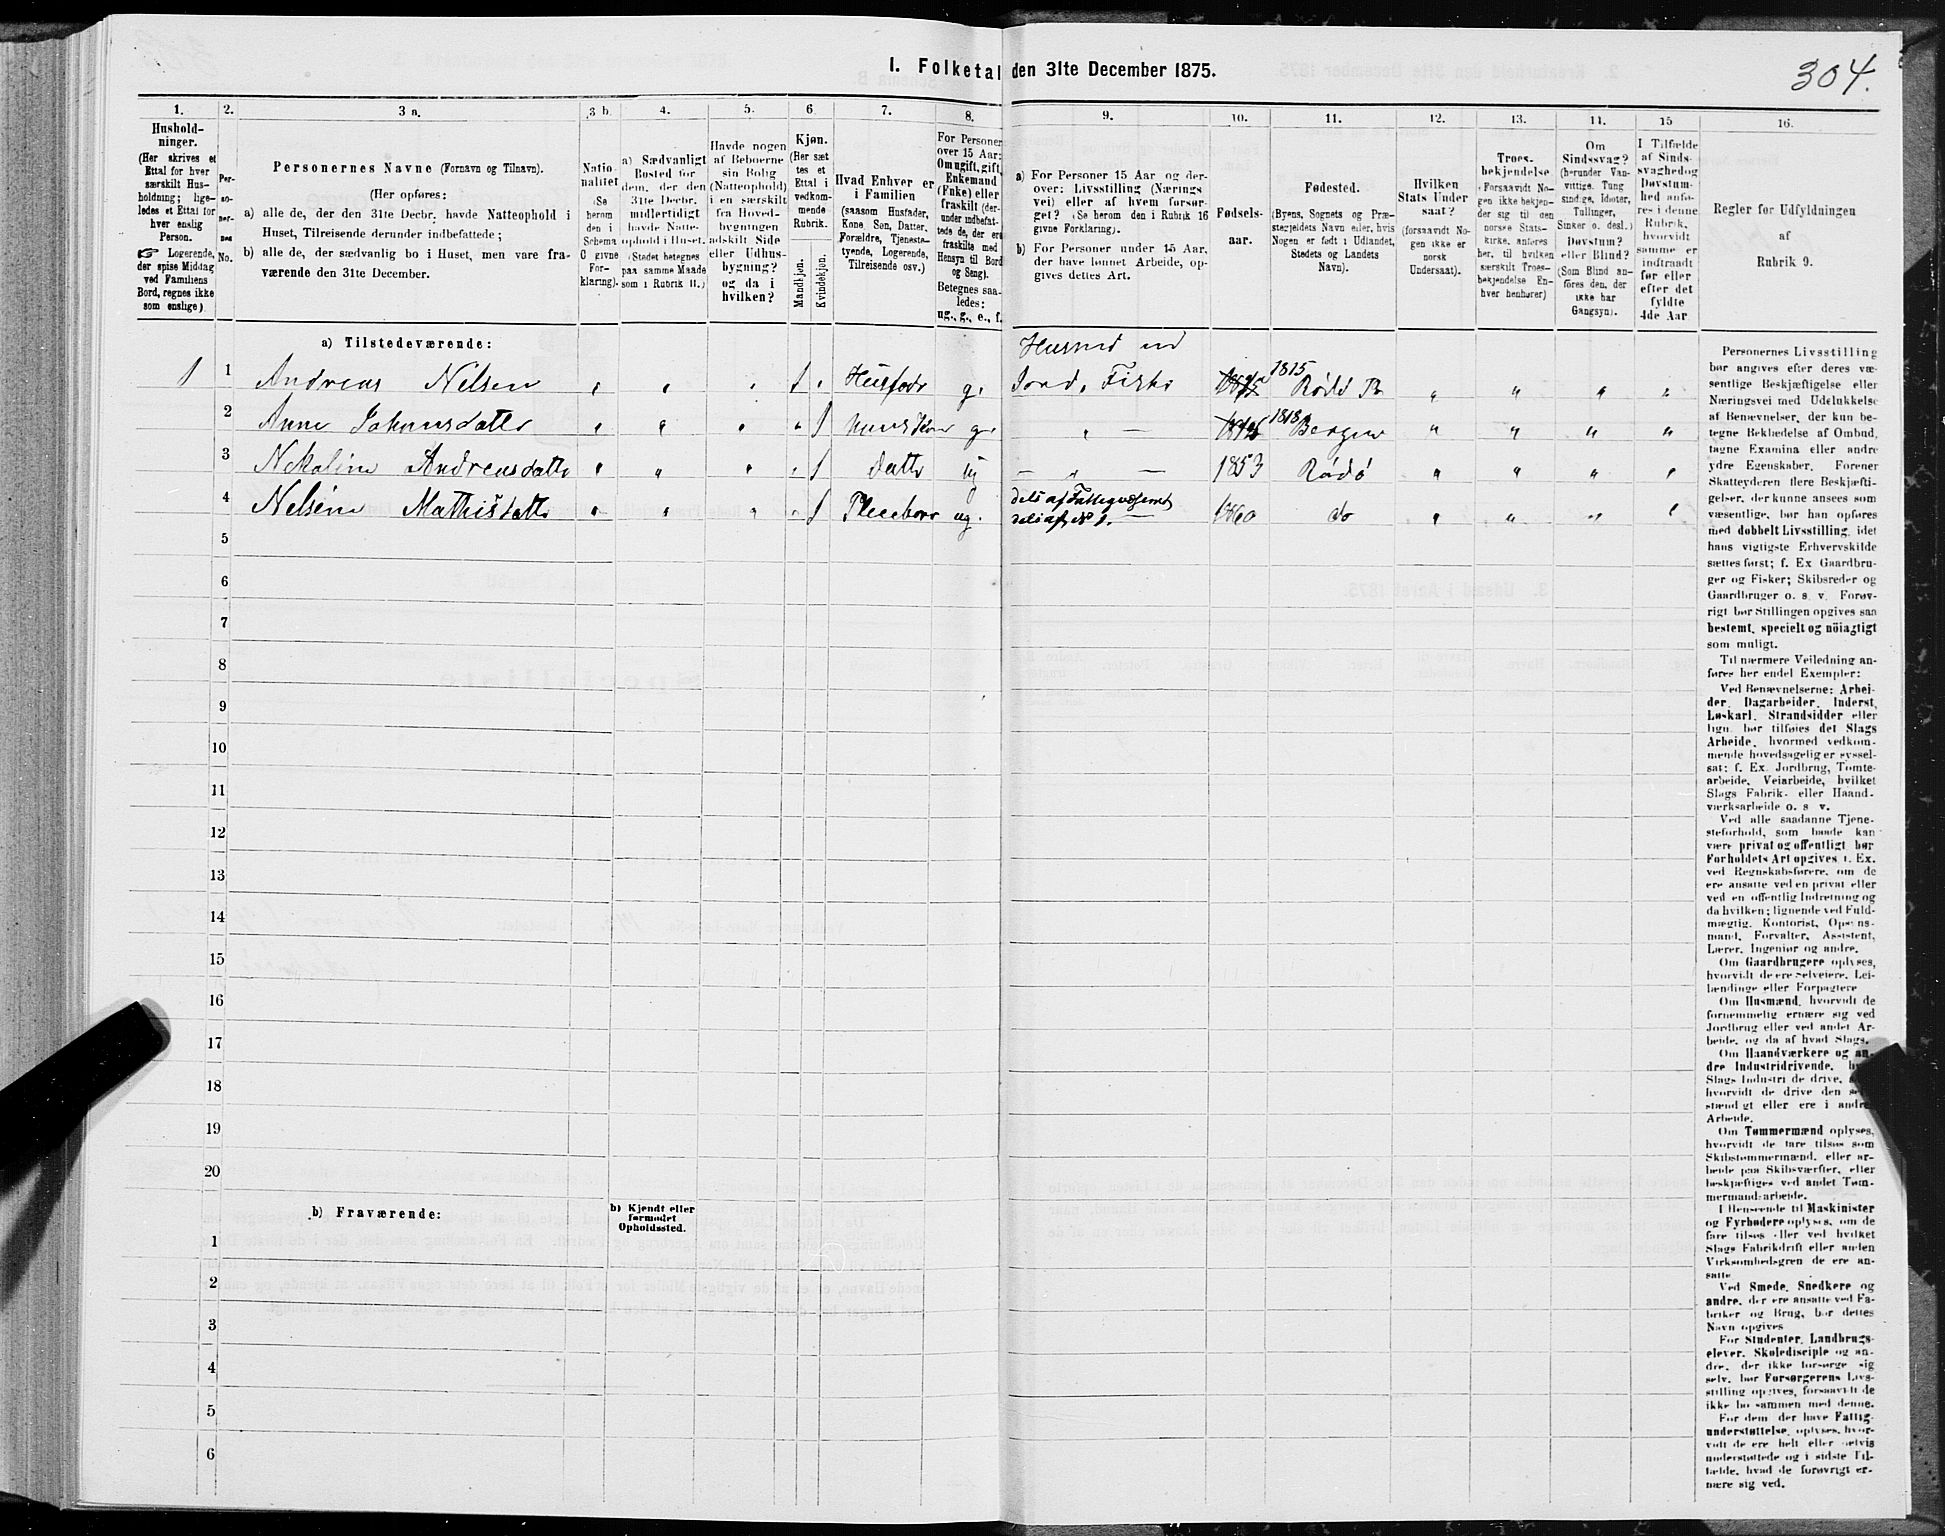 I. Folketal den 31te December 1875.
304.
1.
Hushold-
ninger.
(Her skrives et
Ettal for hver
særskilt Hus-
holdning; lige-
ledes et Ettal for
hver enslig
Person.
☞ Logerende,
der spise Middag
ved Familiens
Bord, regnes ikke
som enslige)
2.
Per-
so-
ner-
nes
No.
3 a.
Personernes Navne (Fornavn og Tilnavn).
(Her opføres:
a) alle de, der den 31te Decbr. havde Natteophold i
Huset, Tilreisende derunder indbefattede;
b) alle de, der sædvanlig bo i Huset, men vare fra-
værende den 31te December.
3 b.
Natio-
nalitet
(Se
herom
den i
Schema
C givne
For-
klaring).
4.
a) Sædvanligt
Bosted for
dem, der den
31te Decbr.
midlertidigt
havde Natte-
ophold i Huset.
(Stedet betegnes
paa samme Maade
som i Rubrik II.)
5.
Havde nogen
af Beboerne
sin Bolig
(Natteophold)
i en særskilt
fra Hoved-
bygningen
adskilt Side-
eller Udhus-
bygning?
og da i
hvilken?
6.
Kjøn.
(Her sæt-
tes et
Ettal i
vedkom-
mende
Rubrik.
Mandkjøn.
Kvindekjøn.
7.
Hvad Enhver er
i Familien
(saasom Husfader,
Kone, Søn, Datter,
Forældre, Tjeneste-
tyende, Logerende,
Tilreisende osv.)
8.
For Personer
over 15 Aar:
Om ugift, gift,
Enkemand
(Enke) eller
fraskilt (der-
under indbefat-
tede de, der ere
fraskilte med
Hensyn til Bord
og Seng).
Betegnes saa-
ledes:
ug., g., e., f.
9.
a) For Personer 15 Aar og der-
over: Livsstilling (Nærings-
vei) eller af hvem forsør-
get? (Se herom den i Rubrik 16
givne Forklaring).
b) For Personer under 15 Aar,
der have lønnet Arbeide, op-
gives dettes Art.
10.
Fødsels-
aar.
11.
Fødested.
(Byens, Sognets og Præ-
stegjeldets Navn eller, hvis
Nogen er født i Udlandet,
Stedets og Landets
Navn).
12.
Hvilken
Stats Under
saat?
(forsaavidt No-
gen ikke er
norsk
Undersaat).
13.
Troes-
bekjendelse
(Forsaavidt No-
gen ikke bekjen-
der sig til den
norske Stats-
kirke, anføres
her, til hvilken
særskilt Troes-
bekjendelse En-
hver henhører)
14.
Om
Sindssvag?
(herunder Van-
vittige, Tung
sindige, Idioter,
Tullinger,
Sinker o. desl.)
Døvstum?
eller Blind?
(Som Blind an-
føres den, der
ikke har
Gangsyn).
15
I Tilfælde
af Sinds-
svaghed og
Døvstum-
hed anfø-
res i denne
Rubrik,
hvorvidt
samme er
indtraadt
før eller
efter det
fyldte
4de Aar.
16.
Regler for Udfyldningen
af
Rubrik 9.
a) Tilstedeværende:
Husmd ud
1 1 Andreas Nelsen „ „ „ 1 „ Husfadr g. Jord, Fisker 1875 1815 Rødø Pr „ „ „ „
2 Anne Johannsdatter „ „ „ „ 1 g. — „ — 1818 Bergen „ „ „ „
3 Nekoline Andreasdatter „ „ „ „ 1 datter ug — „ — 1853 Rødø „ „ „ „
dels af Fattigvæsenet
4 Nelsine Mathisdatter „ „ „ „ 1 Pleiebarn ug. dels af No 1. — 1860 do „ „ „ „
5
6
7
8
9
10
11
12
13
14
15
16
17
18
19
20
b) Fraværende:
b) Kjendt eller
formodet
Opholdssted.
1
2
3
4
5
6
Personernes Livsstilling
bør angives efter deres væ-
sentlige Beskjæftigelse eller
Næringsvei med Udelukkelse
af Benævnelser, der kun be-
tegne Beklædelse af Ombud,
tagne Examina eller andre
ydre Egenskaber. Forener
Skatteyderen flere Beskjæfti-
gelser, der kunne ansees som
væsentlige, bør han opføres
med dobbelt Livsstilling, idet
hans vigtigste Erhvervskilde
sættes først; f. Ex Gaardbru-
ger og Fisker; Skibsreder og
Gaardbruger o. s. v. Forøv-
rigt bør Stillingen opgives saa
bestemt, specielt og nöiagtigt
som muligt.
Til nærmere Veiledning an-
føres her endel Exempler:
Ved Benævnelserne: Arbei-
der, Dagarbeider, Inderst,
Løskarl, Strandsidder eller
lign. bør tilføies det Slags
Arbeide, hvormed vedkom-
mende hovedsagelig er syssel-
sat; f. Ex. Jordbrug, Tomte-
arbeide, Veiarbeide, hvilket
Slags Fabrik- eller Haand-
værksarbeide o. s v.
Ved alle saadanne Tjene-
steforhold, som baade kan
være privat og offentligt bør
Forholdets Art opgives f. Ex.
ved Regnskabsførere, om de
ere ansatte ved en privat eller
ved en offentlig Indretning og
da hvilken; lignende ved Fuld-
mægtig, Kontorist, Opsyns-
mand, Forvalter, Assistent,
Lærer, Ingeniør og andre.
Om Gaardbrugere oplyses,
hvorvidt de ere Selveiere, Lei-
lændinge eller Forpagtere
Om Husmænd, hvorvidt de
fornemmelig ernære sig ved
Jordbrug eller ved andet Ar-
beide, og da af hvad Slags.
Om Haandværkere og an-
dre Industridrivende, hvad
Slags Industri de drive,
hvorvidt de drive den
stændigt eller ere i andres
Arbeide.
Om Tømmermænd oplyses,
hvorvidt de fare tilsøs som
Skibstømmermænd, eller ar-
beide paa Skibsværfter, eller
beskjæftiges ved andet Tøm-
mermandsarbeide.
I Henseende til Maskinister
og Fyrbødere oplyses, om de
fare tilsøs eller ved hvilket
Slags Fabrikdrift eller anden
Virksomhedsgren de ere an-
satte
Ved Smede, Snedkere og
andre, der ere ansatte ved Fa-
briker og Brug, bør dettes
Navn opgives
For Studenter, Landbrugs-
elever, Skoledisciple og an-
dre, der ikke forsørge sig
selv, bør Forsørgerens Livs-
stilling opgives, forsaavidt de
ikke bo sammen med denne.
For dem, der have Fattig-
understøttelse, oplyses, hvor-
vidt de ere helt eller delvis
understøttede og i sidste Til-
fælde, hvad de forøvrigt er-
nære sig ved.